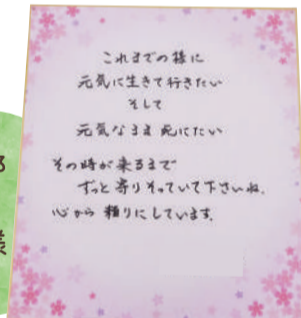 これまでの様に
元気に生きて行きたい
そして
元気なまま死にたい
その時が来るまで
ずっと寄りそっていて下さいね。
心から頼りにしています。
様